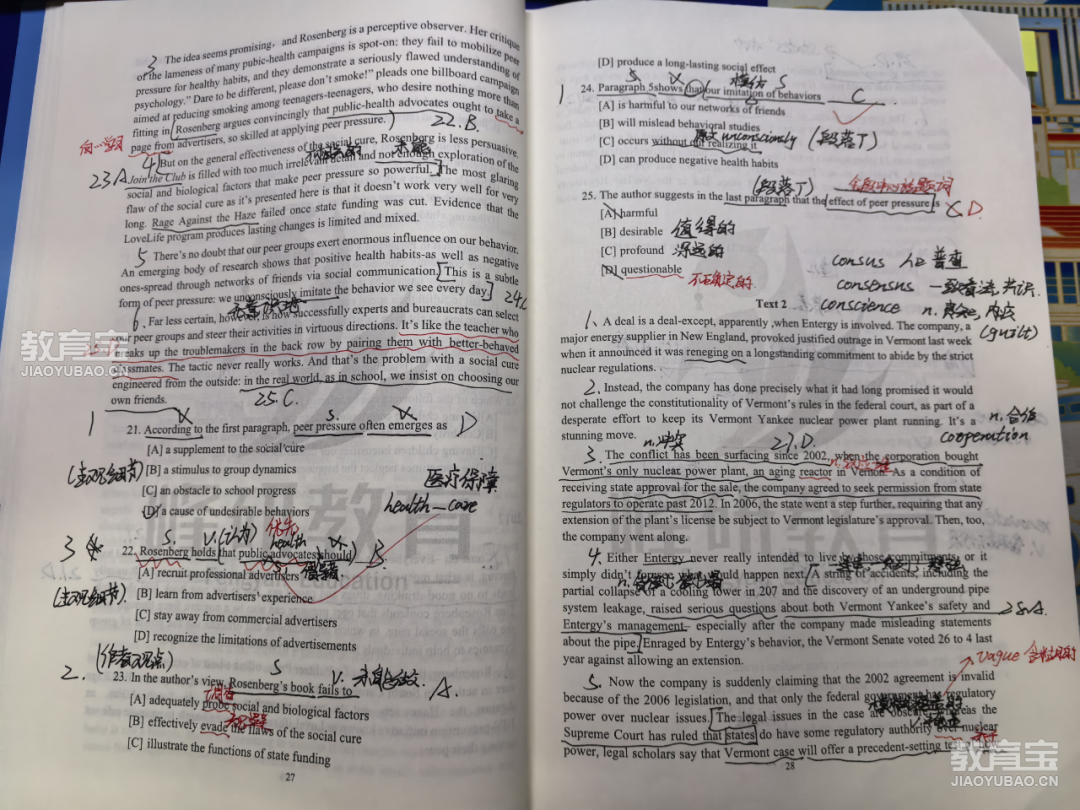 3 The idea seems promising, and Rosenberg is a perceptive observer. Her critique
of the lameness of many pubic-health campaigns is spot-on: they fail to mobilize peer
pressure for healthy habits, and they demonstrate a seriously flawed understanding of
psychology." Dare to be different, please don't smoke!" pleads one billboard campaign
aimed at reducing smoking among teenagers-teenagers, who desire nothing more than
fitting in. Rosenberg argues convincingly that public-health advocates ought to take a
page from advertisers, so skilled at applying peer pressure.
22.B.
4 But on the general effectiveness of the social cure, Rosenberg is less persuasive.
23A Join the Club is filled with too much irrelevant detail and not enough exploration of the
social and biological factors that make peer pressure so powerful. The most glaring
flaw of the social cure as it's presented here is that it doesn't work very well for very
long. Rage Against the Haze failed once state funding was cut. Evidence that the
LoveLife program produces lasting changes is limited and mixed.
5 There's no doubt that our peer groups exert enormous influence on our behavior.
An emerging body of research shows that positive health habits-as well as negative
ones-spread through networks of friends via social communication. This is a subtle
form of peer pressure: we unconsciously imitate the behavior we see every day. 24C
6. Far less certain, however, is how successfully experts and bureaucrats can select
our peer groups and steer their activities in virtuous directions. It's like the teacher who
breaks up the troublemakers in the back row by pairing them with better-behaved
classmates. The tactic never really works. And that's the problem with a social cure
engineered from the outside: in the real world, as in school, we insist on choosing our
own friends.
25.C.
1 21. According to the first paragraph, peer pressure often emerges as D
[A] a supplement to the social cure
[B] a stimulus to group dynamics
[C] an obstacle to school progress
医疗保障
[D] a cause of undesirable behaviors
health-care
S. V.(认为) 优先 health
3 22. Rosenberg holds that public advocates should B
[A] recruit professional advertisers
[B] learn from advertisers' experience
[C] stay away from commercial advertisers
[D] recognize the limitations of advertisements
(作者观点) S V.
2. 23. In the author's view, Rosenberg's book fails to A.
[A] adequately probe social and biological factors
[B] effectively evade the flaws of the social cure
[C] illustrate the functions of state funding
27
[D] produce a long-lasting social effect
S 模仿 S
1 24. Paragraph 5shows that our imitation of behaviors C
[A] is harmful to our networks of friends
[B] will mislead behavioral studies
[C] occurs without our realizing it unconsciously (段落丁)
[D] can produce negative health habits
(段落丁)
25. The author suggests in the last paragraph that the effect of peer pressure is D.
[A] harmful
[B] desirable 值得的
[C] profound 深远的
[D] questionable 不确定的
consus n. 普查
consensus 一致看法,共识.
conscience n. 良知, 内疚
(guilt)
Text 2
1、A deal is a deal-except, apparently ,when Entergy is involved. The company, a
major energy supplier in New England, provoked justified outrage in Vermont last week
when it announced it was reneging on a longstanding commitment to abide by the strict
nuclear regulations.
2. Instead, the company has done precisely what it had long promised it would
not challenge the constitutionality of Vermont's rules in the federal court, as part of a
desperate effort to keep its Vermont Yankee nuclear power plant running. It's a
stunning move.
n. 合作
cooperation
n.冲突 27.D.
3. The conflict has been surfacing since 2002, when the corporation bought
Vermont's only nuclear power plant, an aging reactor in Vernon. As a condition of
receiving state approval for the sale, the company agreed to seek permission from state
regulators to operate past 2012. In 2006, the state went a step further, requiring that any
extension of the plant's license be subject to Vermont legislature's approval. Then, too,
the company went along.
4. Either Entergy never really intended to live by those commitments, or it
simply didn't foresee what would happen next. A string of accidents, including the
partial collapse of a cooling tower in 207 and the discovery of an underground pipe
system leakage, raised serious questions about both Vermont Yankee's safety and
Entergy's management- especially after the company made misleading statements
28A.
about the pipe. Enraged by Entergy's behavior, the Vermont Senate voted 26 to 4 last
year against allowing an extension.
vague
5. Now the company is suddenly claiming that the 2002 agreement is invalid
because of the 2006 legislation, and that only the federal government has regulatory
power over nuclear issues. The legal issues in the case are obscure: whereas the
Supreme Court has ruled that states do have some regulatory authority over nuclear
power, legal scholars say that Vermont case will offer a precedent-setting test of how
28
教育宝
JIAOYUBAO.CN
教育宝
JIAOYUBAO.CN